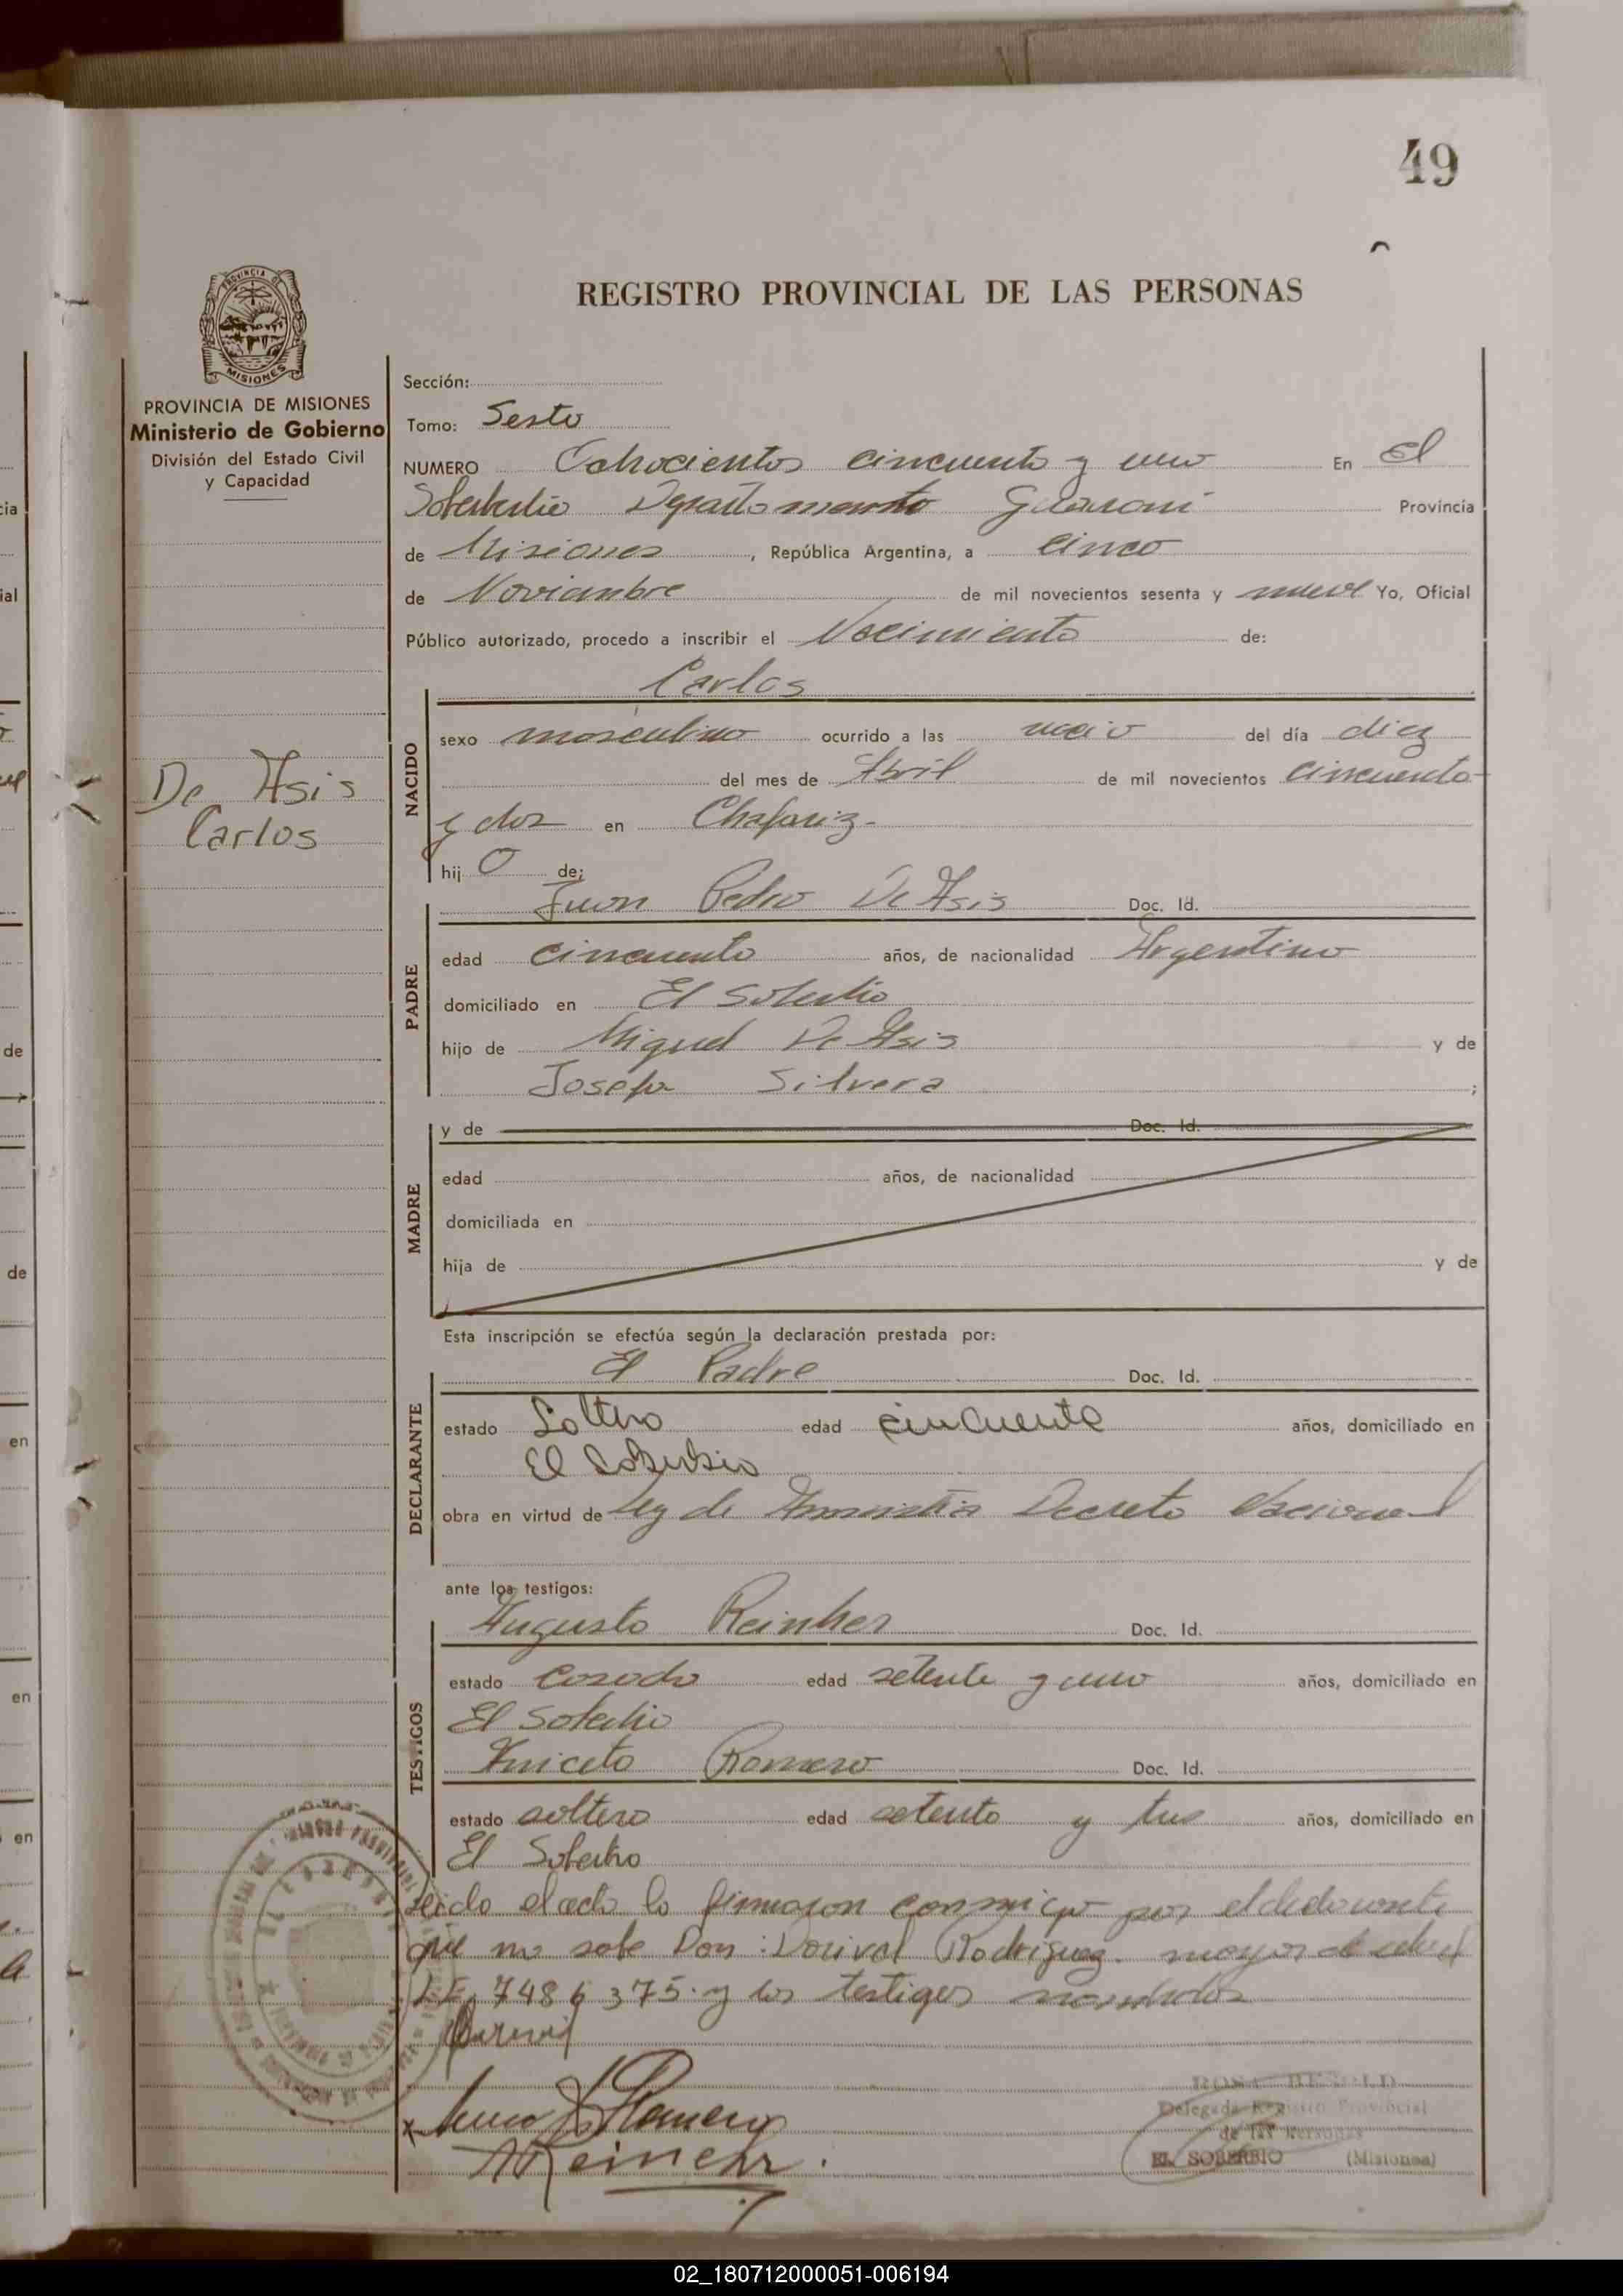 49
REGISTRO PROVINCIAL DE LAS PERSONAS
PROVINCIA DE MISIONES
Ministerio de Gobierno
División del Estado Civil
y Capacidad
De Asis
Carlos
Sección:
Tomo: Sesto
NUMERO Ochocientos cincuenta y uno En El
Soberbio Departamento Guarani Provincia
de Misiones, República Argentina, a cinco
de Noviembre de mil novecientos sesenta y nueve Yo, Oficial
Público autorizado, procedo a inscribir el Nacimiento de:
Carlos
NACIDO
sexo masculino ocurrido a las del día diez
del mes de Abril de mil novecientos cincuenta
y dos en Chafariz-
hij o de:
Juan Pedro De Asis Doc. Id.
PADRE
edad cincuenta años, de nacionalidad Argentino
domiciliado en El Soberbio
hijo de Miguel De Asis y de
Josefa Silvera ;
MADRE
y de Doc. Id.
edad años, de nacionalidad
domiciliada en
hija de y de
Esta inscripción se efectúa según la declaración prestada por:
El Padre Doc. Id.
DECLARANTE
estado Soltero edad cincuenta años, domiciliado en
El Soberbio
obra en virtud de Ley de Amnistia Decreto Nacional
ante los testigos:
Augusto Reinher Doc. Id.
TESTIGOS
estado Casado edad setenta y uno años, domiciliado en
El Soberbio
Aniceto Romero Doc. Id.
estado soltero edad setenta y tres años, domiciliado en
El Soberbio
Leido el acta la firmaron conmigo por el declarante
que no sabe Don: Dorival Rodriguez mayor de edad
L.E. 7486375. y los testigos nombrados
Romero
A Reinehr.
ROSA BESOLD
Delegada Registro Provincial
de las Personas
EL SOBERBIO (Misiones)
02_180712000051-006194